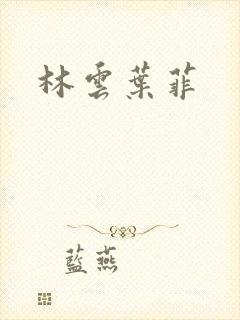 林雲葉菲
藍燕